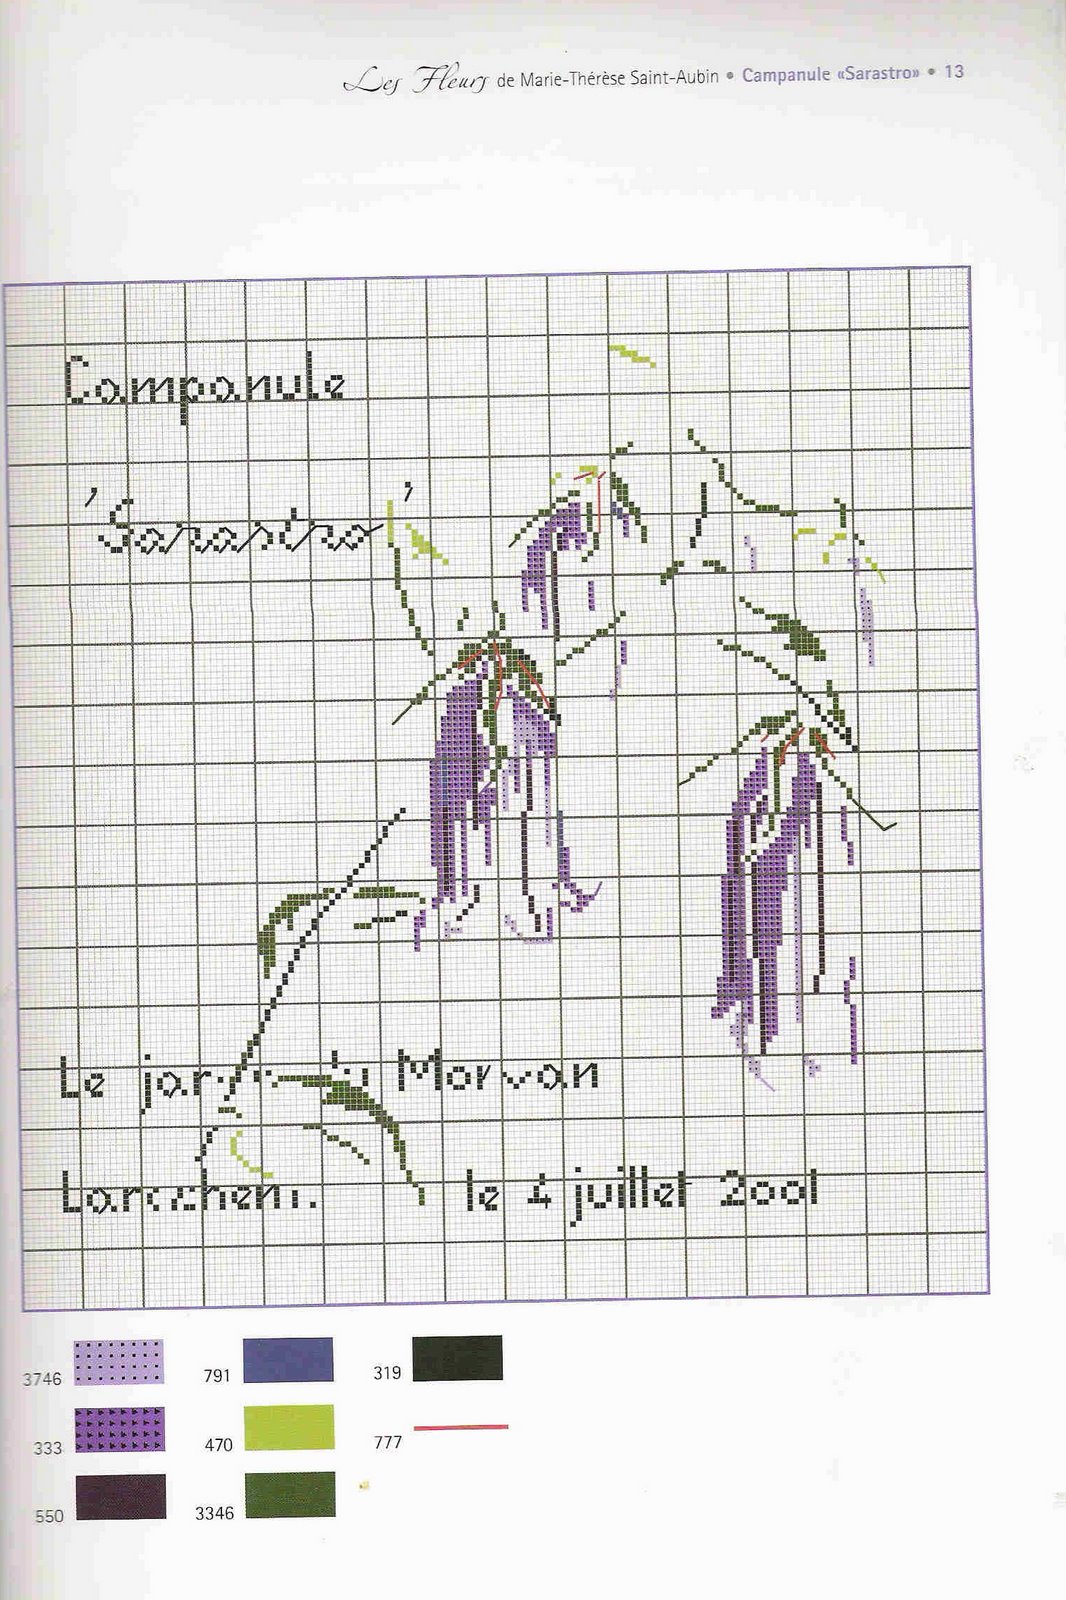 Les Fleurs de Marie-Thérèse Saint-Aubin • Campanule «Sarastro» • 13
Campanule
'Sarastro'
Le jar du Morvan
le 4 juillet 2001
3746 791 319
333 470 777
550 3346